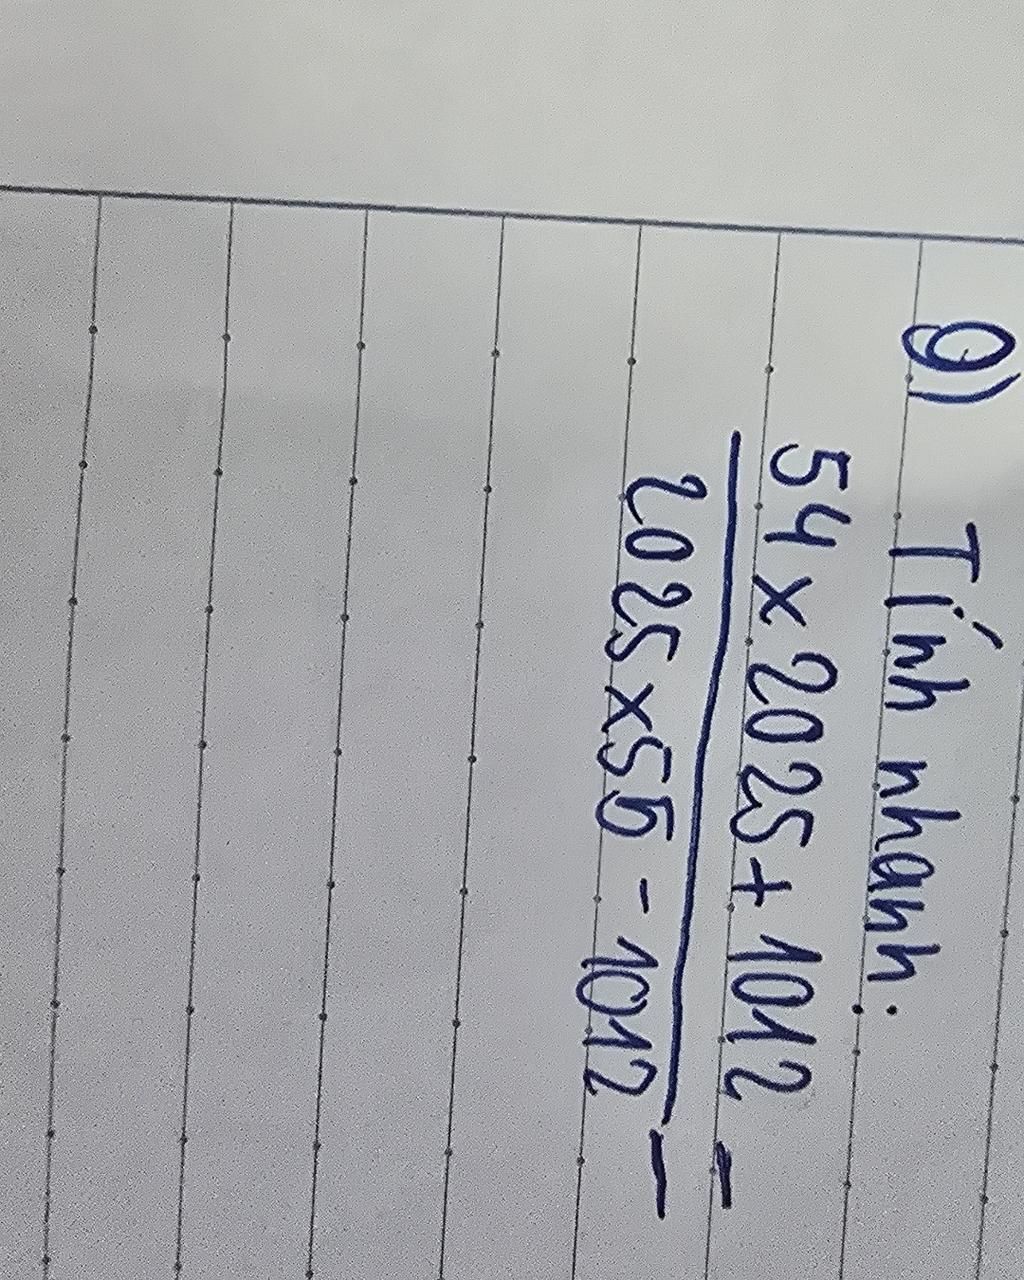 9) Tính nhanh:
54 x 2025 + 1012 =
2025 x 55 - 1012